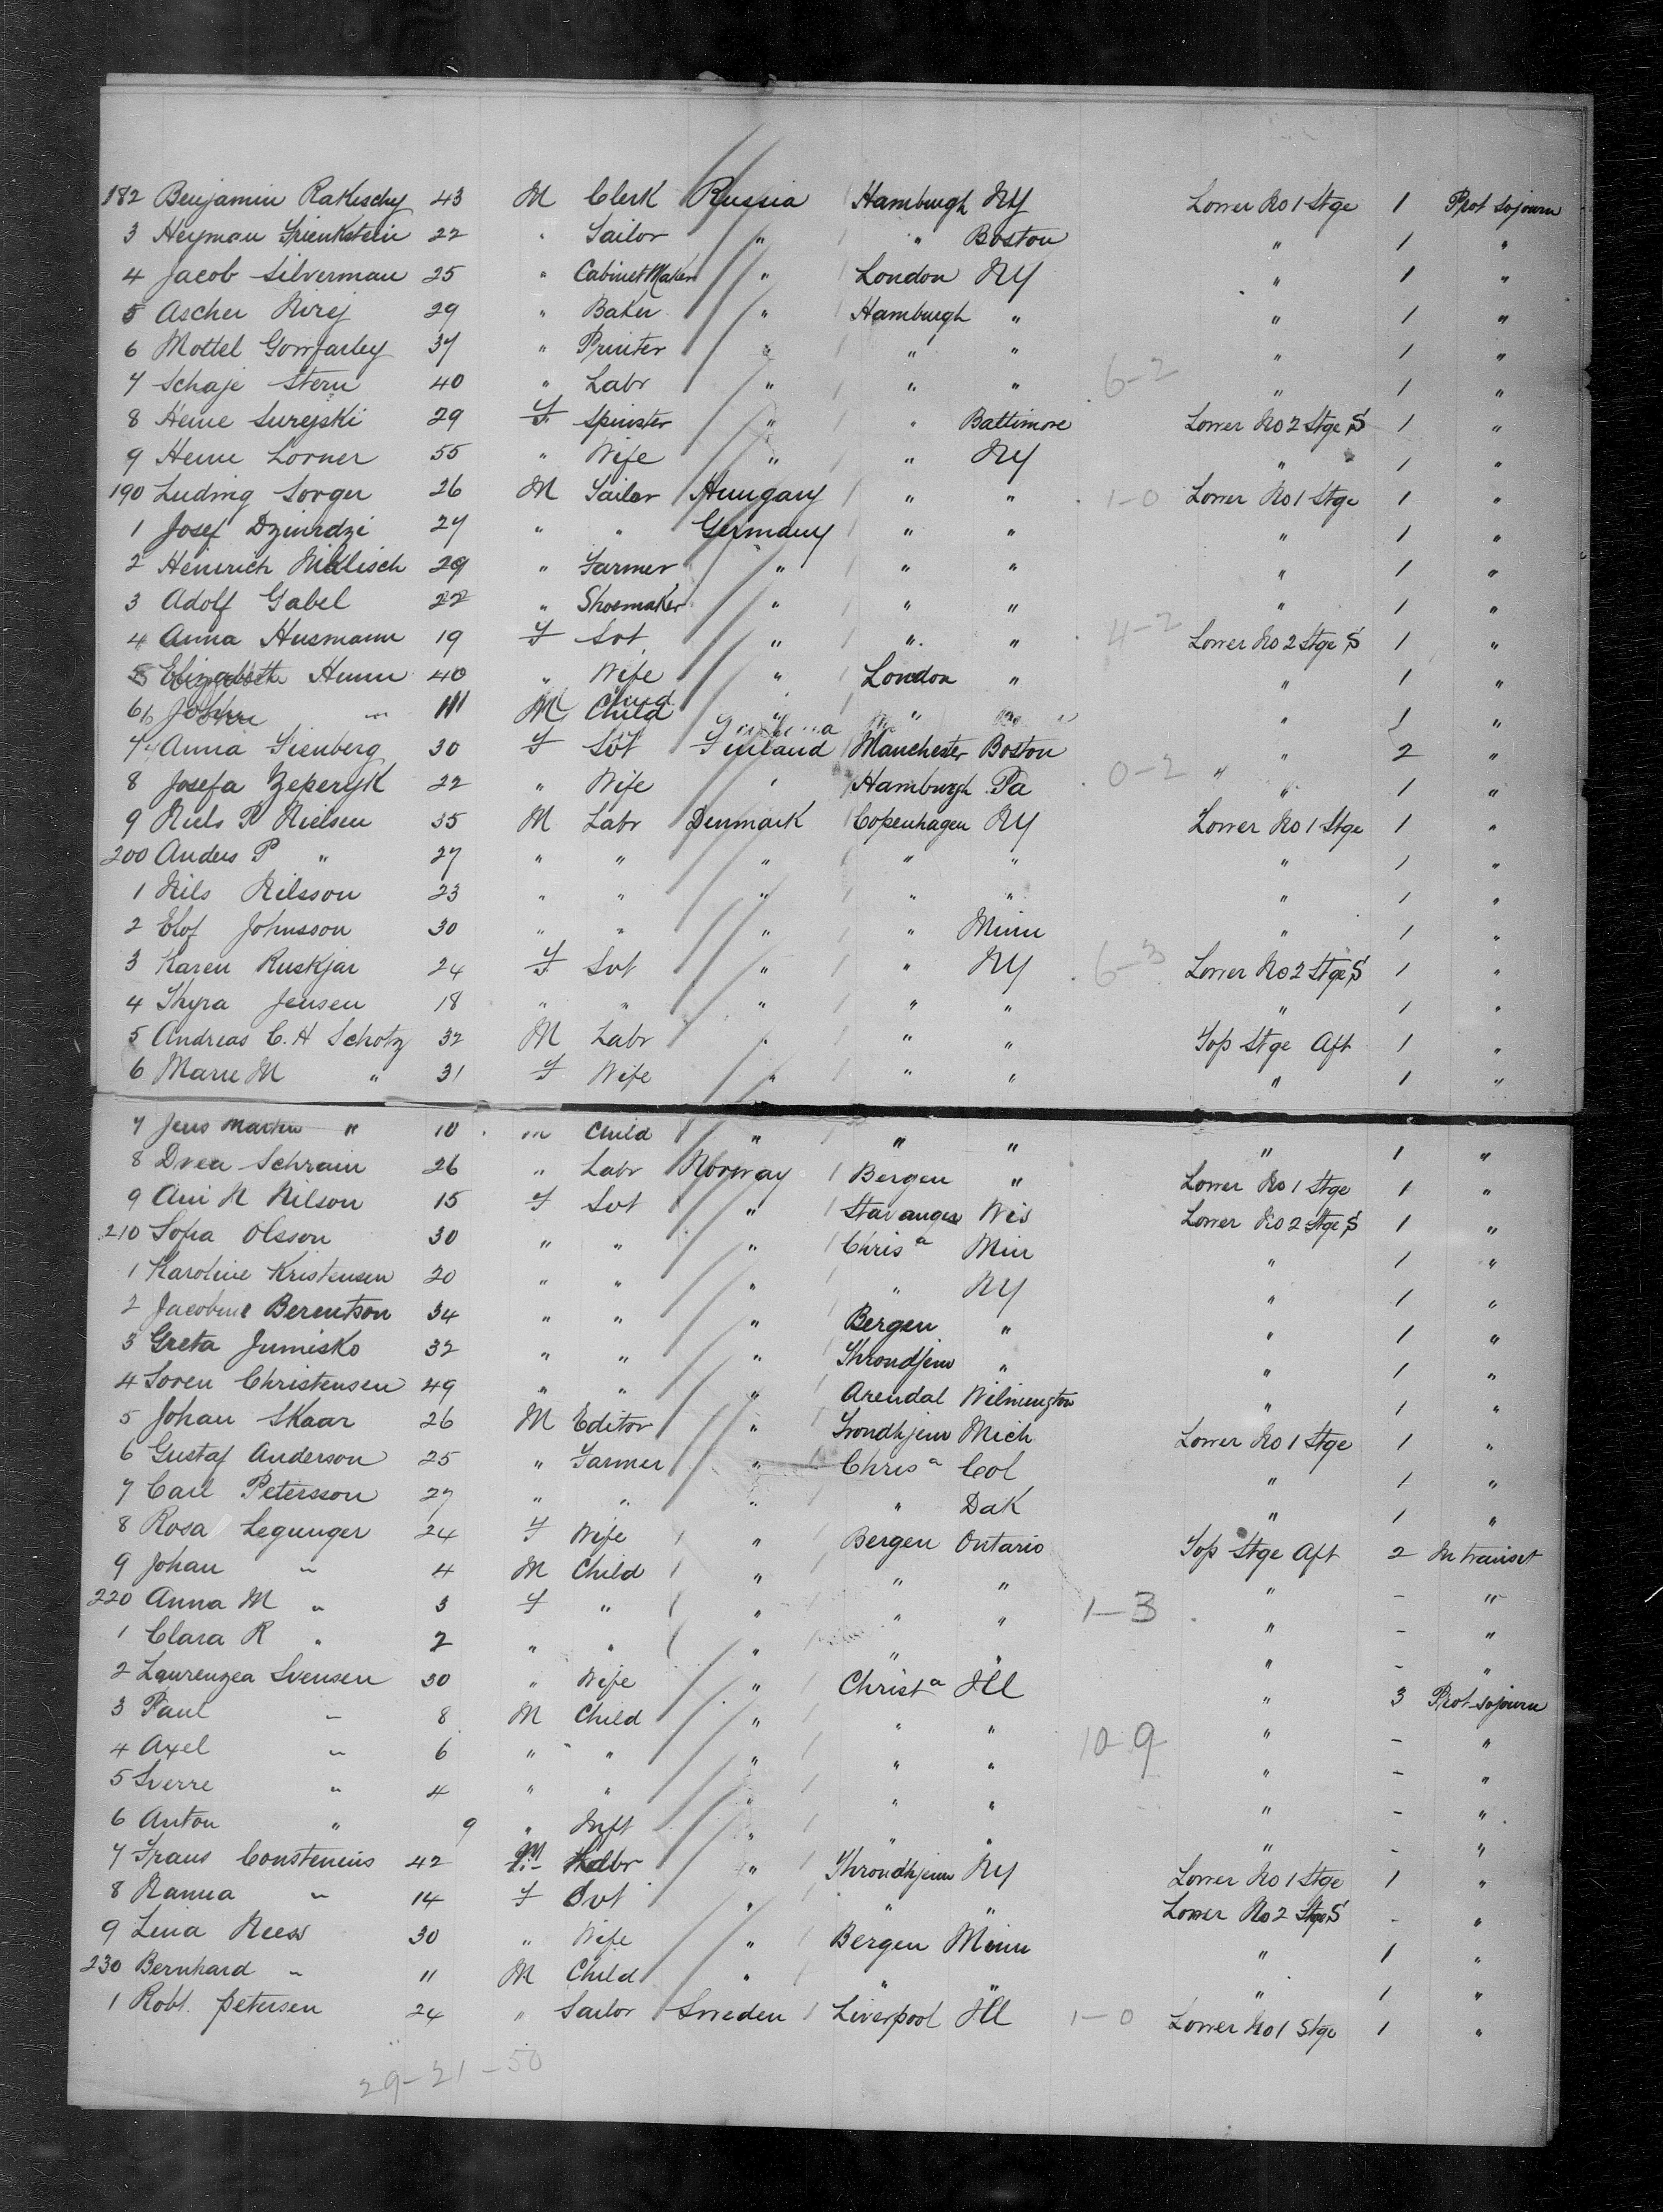 182 Benjamin Rakischy 43 M Clerk Russia Hamburgh NY Lower No 1 Stge 1 Prot sojourn
3 Heyman 22 " Tailor " " Boston " 1 "
4 Jacob Silverman 25 " Cabinet Maker " London NY " 1 "
5 Ascher 29 " Baker " Hamburgh " " 1 "
6 Mottel 37 " Printer " " " " 1 "
7 Schaje Stern 40 " Labr " " " 6-2 " 1 "
8 Heine Surejski 29 F Spinster " " Baltimore Lower No 2 Stge S 1 "
9 Henne Lorner 55 " Wife " " NY " 1 "
190 Ludwig Sorger 26 M Tailor Hungary " " 1-0 Lower No 1 Stge 1 "
1 Josef 27 " " Germany " " " 1 "
2 Heinrich 29 " Farmer " " " " 1 "
3 Adolf Gabel 22 " Shoemaker " " " " 1 "
4 Anna Husmann 19 F Svt " " " 4-2 Lower No 2 Stge S 1 "
5 Elizabeth Hunn 40 " Wife " London " " 1 "
6 " M Child " " " " 1 "
7 Anna Sienberg 30 F Svt Finland Manchester Boston " 2 "
8 Josefa 22 " Wife " Hamburgh Pa 0-2 " " 1 "
9 Niels P Nielsen 35 M Labr Denmark Copenhagen NY Lower No 1 Stge 1 "
200 Anders P " 27 " " " " " " 1 "
1 Nils Nilsson 23 " " " " " " 1 "
2 Elof Johnsson 30 " " " " Minn " 1 "
3 Karen Ruskjar 24 F Svt " " NY 6-3 Lower No 2 Stge S 1 "
4 Thyra Jensen 18 " " " " " " 1 "
5 Andreas C. H Schotz 32 M Labr " " " Top Stge Aft 1 "
6 Marie M " 31 F Wife " " " " 1 "
7 Jens Martin " 10 m Child " " " " 1 "
8 Drea Schrain 26 " Labr Norway Bergen " Lower No 1 Stge 1 "
9 Ani N Nilson 15 F Svt " Stavanger Wis Lower No 2 Stge S 1 "
210 Sofia Olsson 30 " " " Chris a Min " 1 "
1 Karoline Kristensen 20 " " " " NY " 1 "
2 Jacobine Berentson 34 " " " Bergen " " 1 "
3 Greta Jumisko 32 " " " Throndjem " " 1 "
4 Soren Christensen 49 " " " Arendal Wilmington " 1 "
5 Johan Skaar 26 M Editor " Trondhjem Mich Lower No 1 Stge 1 "
6 Gustaf Anderson 25 " Farmer " Chris a Col " 1 "
7 Carl Petersson 27 " " " " Dak " 1 "
8 Rosa Legunger 24 F Wife " Bergen Ontario Top Stge Aft 2 In transit
9 Johan " 4 M Child " " " " - "
220 Anna M " 3 F " " " " 1-3 " - "
1 Clara R " 2 " " " " " " - "
2 Laurenzea Svensen 30 " Wife " Christ a Ill " 3 Prot sojourn
3 Paul " 8 M Child " " " " - "
4 Axel " 6 " " " " " 10-9 " - "
5 Sverre " 4 " " " " " " - "
6 Anton " 9 " Inft " " " " - "
7 Frans Constenius 42 M Labr " Throndhjem NY Lower No 1 Stge 1 "
8 Ranna " 14 F Svt " " " Lower No 2 Stge S - "
9 Lina Ness 30 " Wife " Bergen Minn " 1 "
230 Bernhard " 11 M Child " " " " 1 "
1 Robt. Petersen 24 " Sailor Sweden Liverpool Ill 1-0 Lower No 1 Stge 1 "
29-21-50